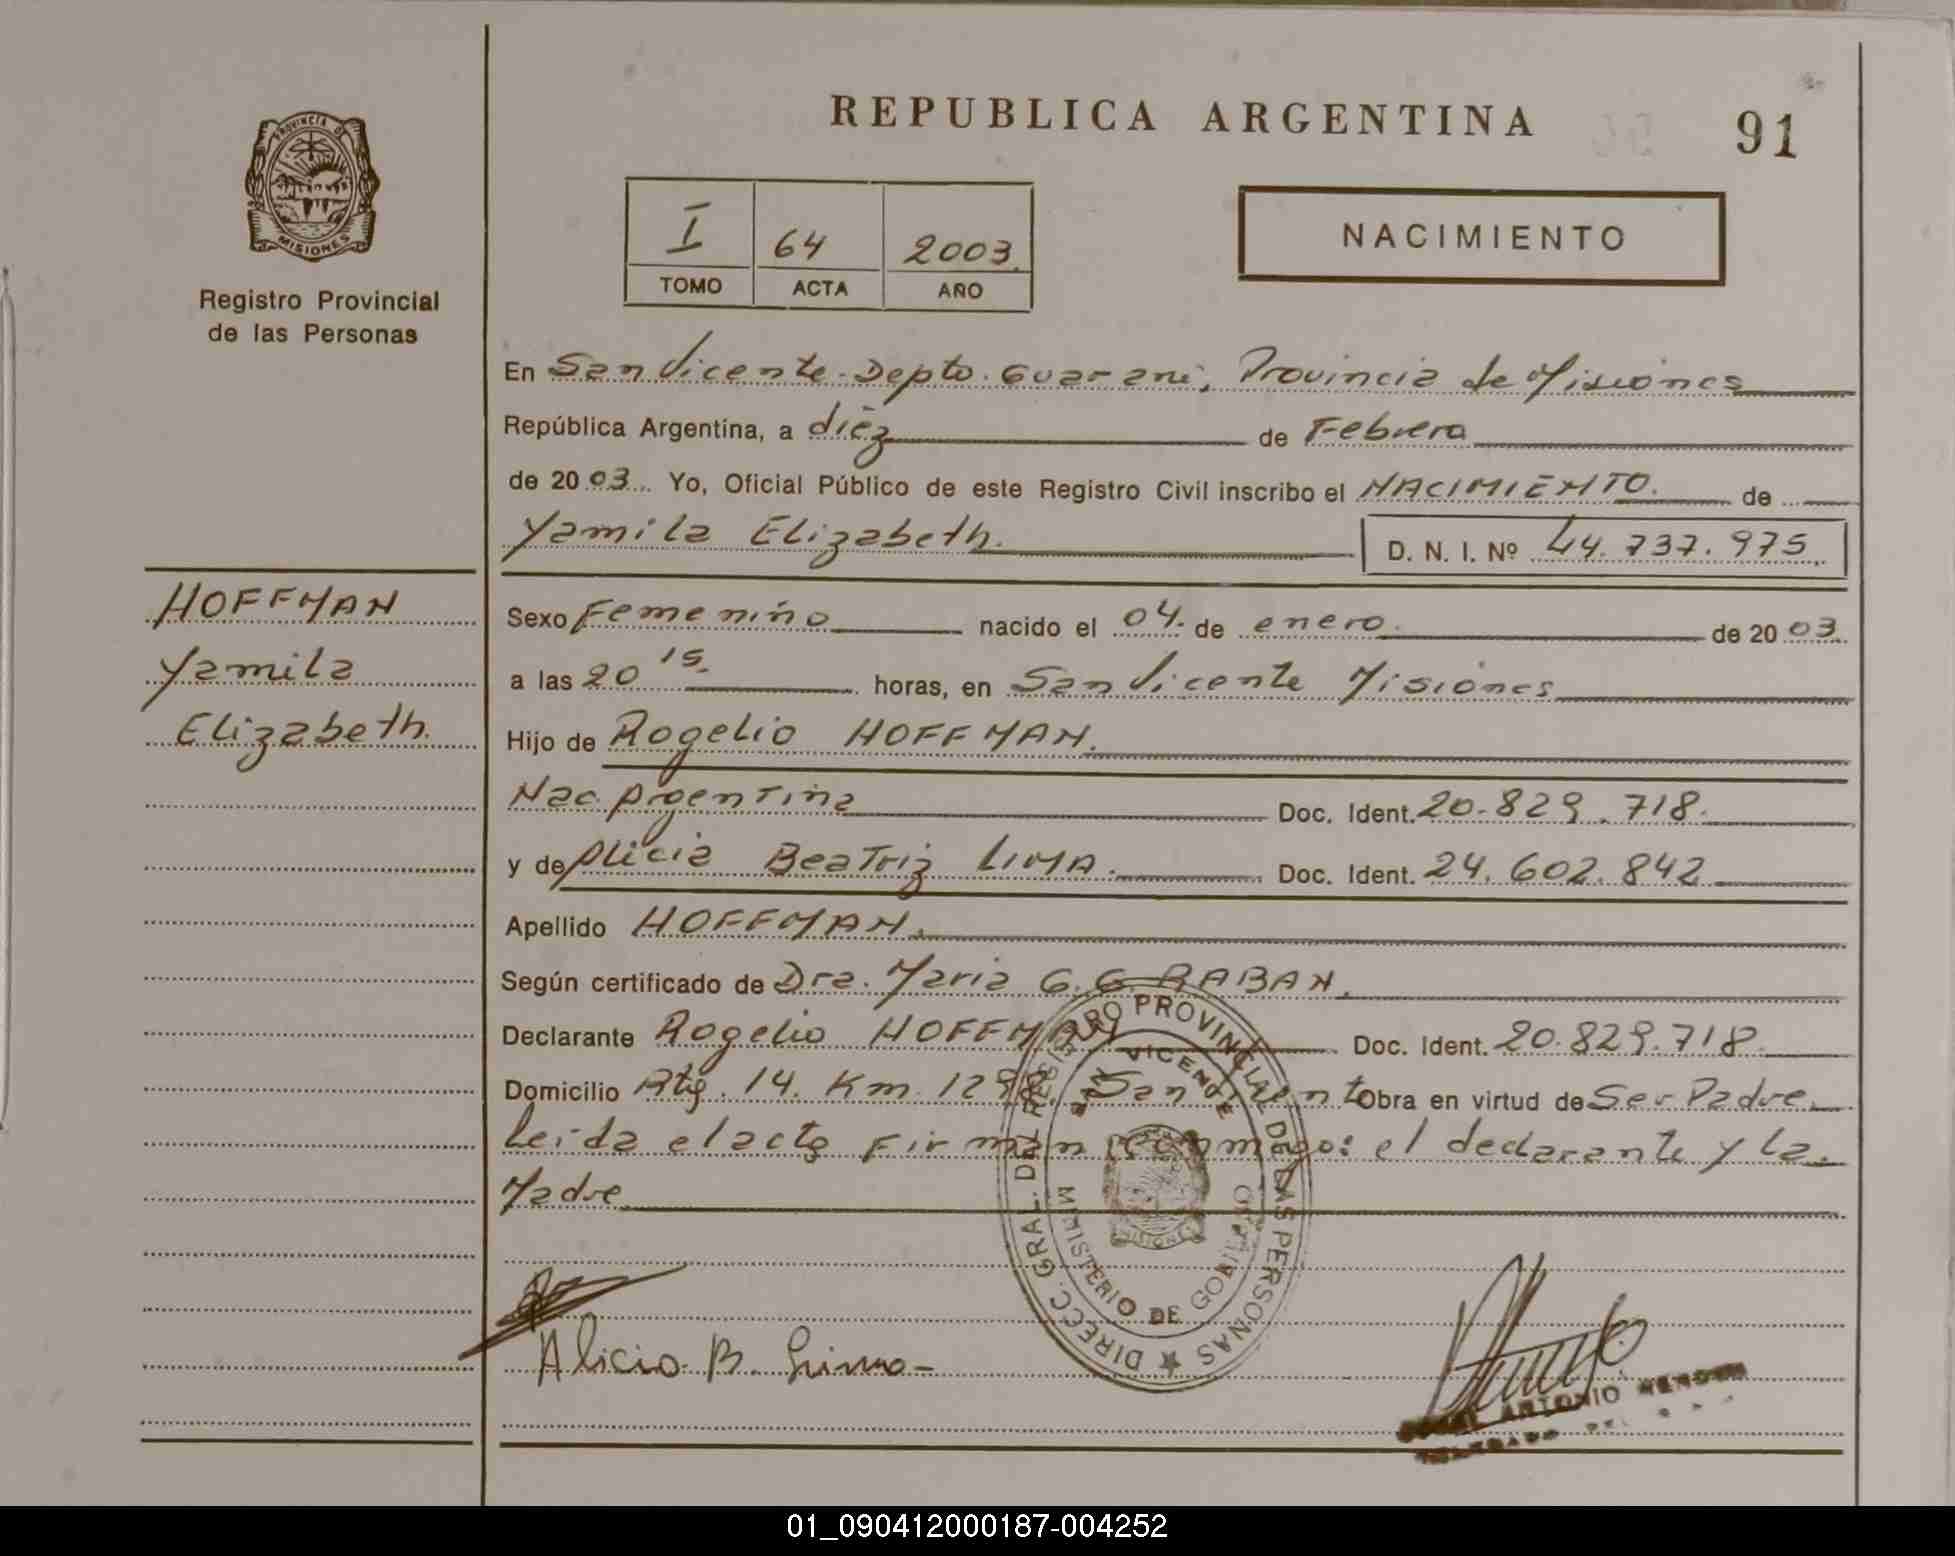 REPUBLICA ARGENTINA
91
PROVINCIA DE
MISIONES
Registro Provincial
de las Personas
I 64 2003.
TOMO ACTA AÑO
NACIMIENTO
En San Vicente. Depto. Guarani, Provincia de Misiones
República Argentina, a diez de Febrero
de 2003. Yo, Oficial Público de este Registro Civil inscribo el NACIMIENTO. de
Yamila Elizabeth. D. N. I. Nº 44.737.975
HOFFMAN
Yamila
Elizabeth.
Sexo Femenino nacido el 04. de enero. de 2003.
a las 20 15. horas, en San Vicente Misiones
Hijo de Rogelio HOFFMAN.
Nac. Argentina Doc. Ident. 20.829.718.
y de Alicia Beatriz LIMA. Doc. Ident. 24.602.842
Apellido HOFFMAN.
Según certificado de Dra. Maria G. G. RABAN.
Declarante Rogelio HOFFMAN Doc. Ident. 20.829.718
Domicilio Rta. 14. Km. San Obra en virtud de Ser Padre.
Leida el acta firman conmigo: el declarante y la
Madre
DIRECC. GRAL. DEL REGISTRO PROVINCIAL DE LAS PERSONAS
SAN VICENTE
MINISTERIO DE GOBIERNO
MISIONES
Alicia B. Lima
ANTONIO
01_090412000187-004252